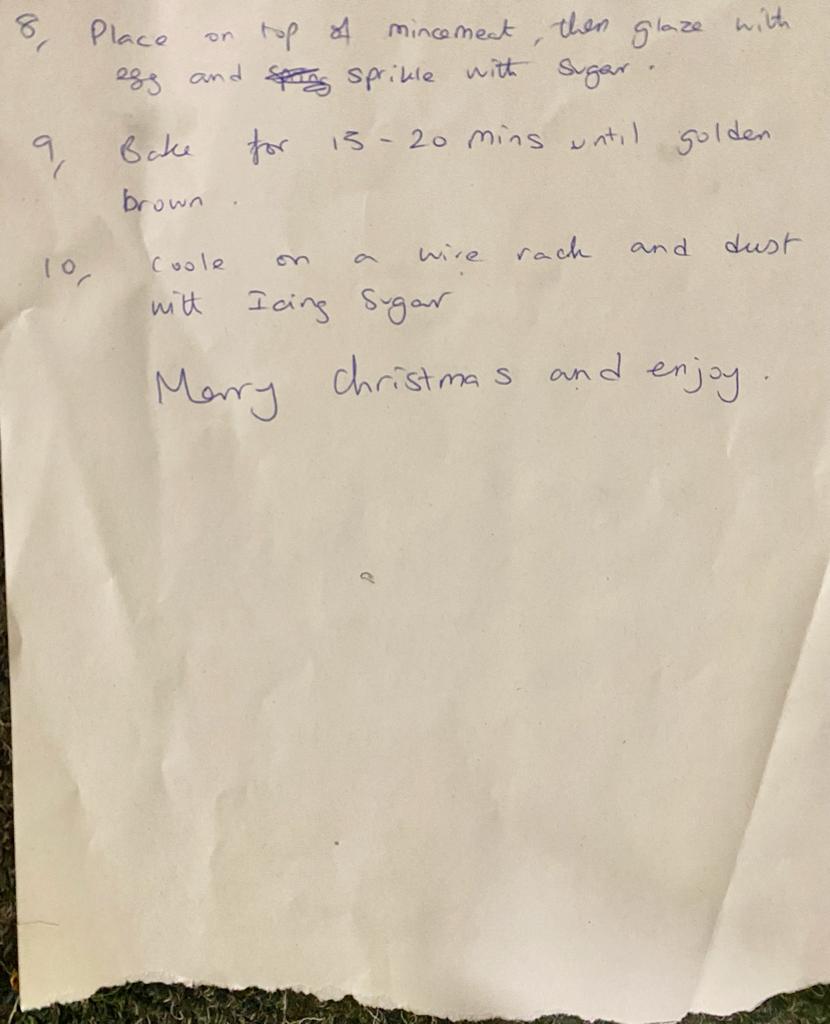 8, Place on top of mincemeat, then glaze with
egg and sprikle with sugar.
9, Bake for 15-20 mins until golden
brown.
10, Coole on a wire rack and dust
with Icing Sugar
Merry Christmas and enjoy.